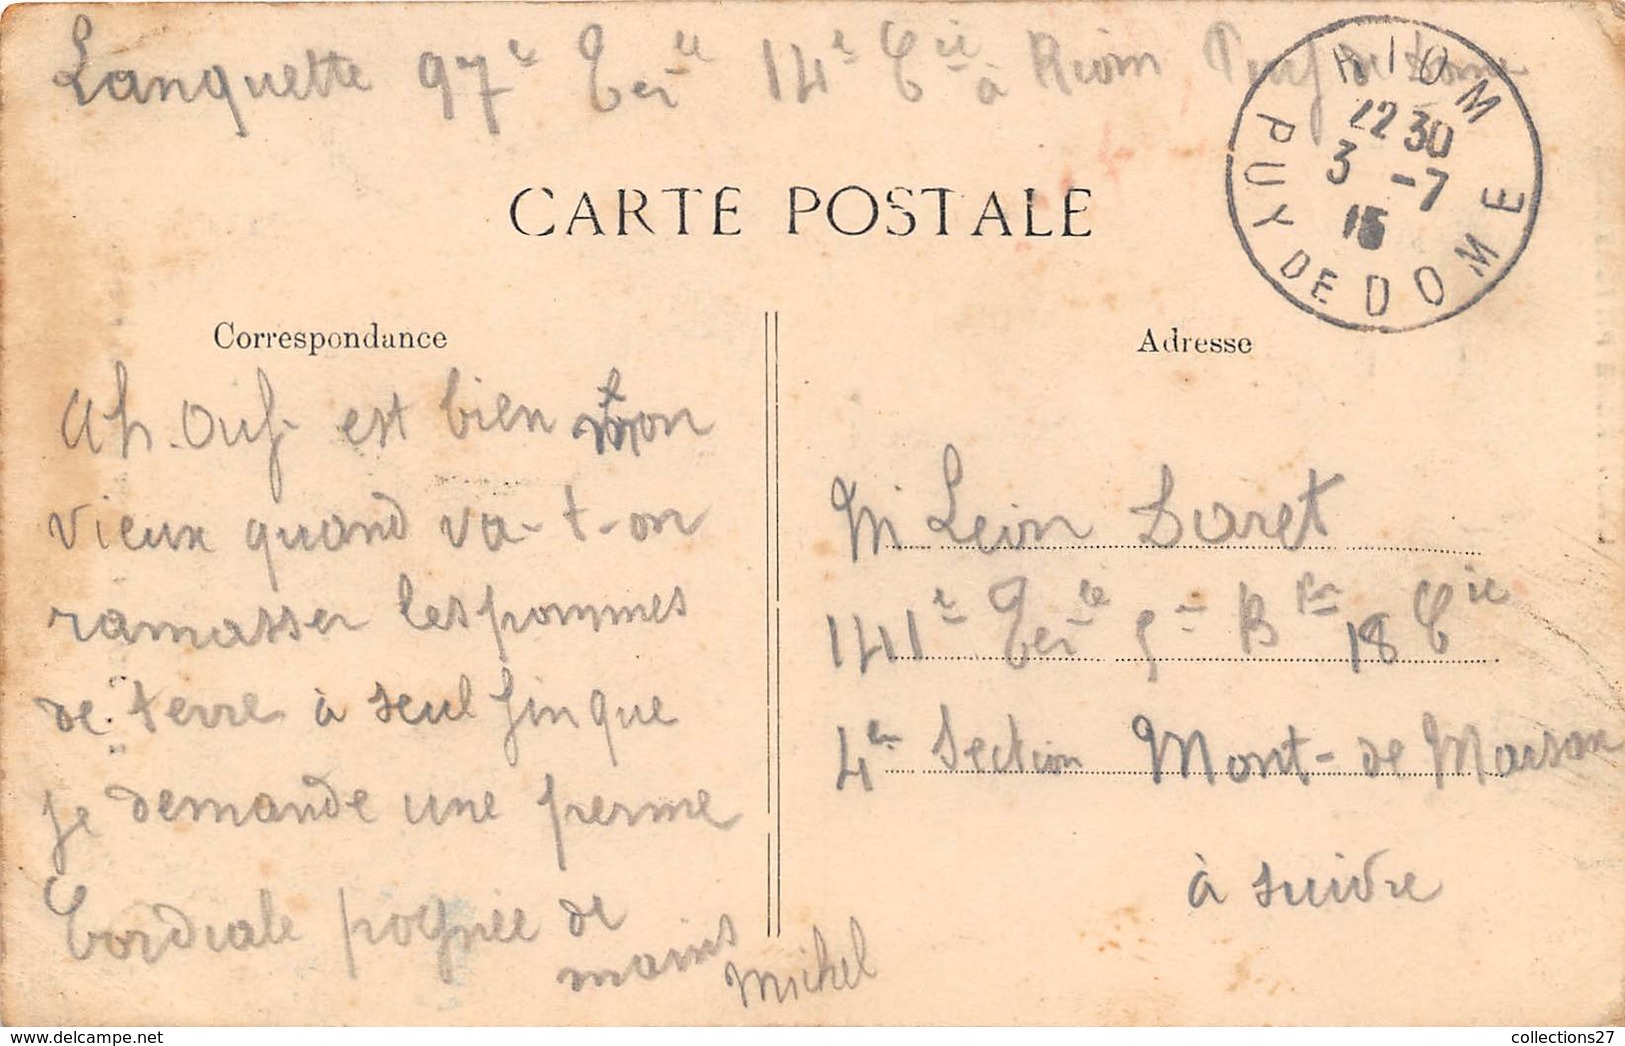 Lanquette 97e Terle 14e Cie à Riom Puy de Dôme
RIOM
22 30
3 -7
15
PUY DE DOME
CARTE POSTALE
Correspondance
Adresse
Ah. Ouf. est bien mon
vieux quand va-t-on
ramasser les pommes
de terre à seul fin que
je demande une perme
Cordiale pognée de
mains
Michel
M Léon Daret
141e Terle Bon 18 Cie
4e Section Mont-de Marsan
à suivre
collections27